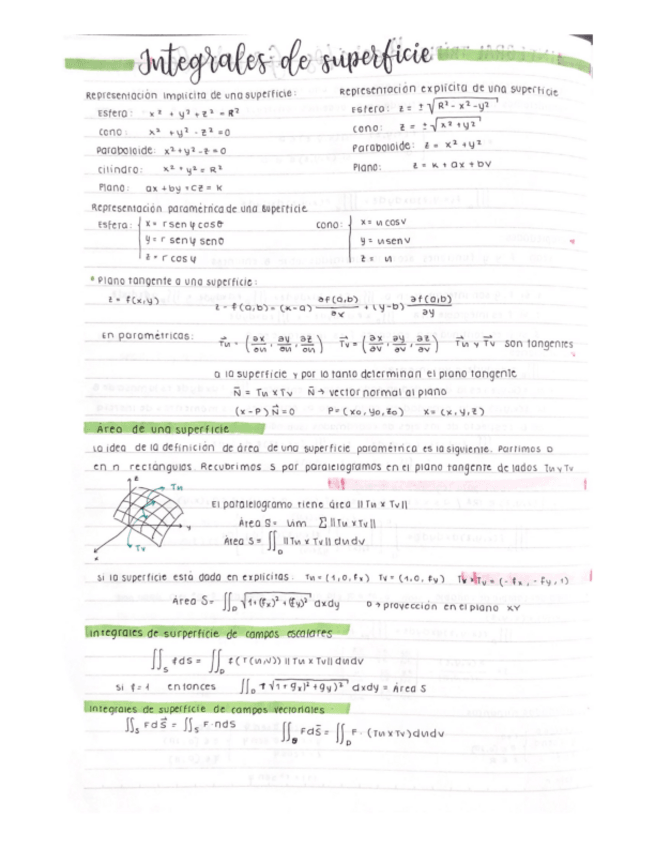 Integrales de superficie
Representación implícita de una superficie:
Esfera: x² + y² + z² = R²
cono: x² + y² - z² = 0
Paraboloide: x² + y² - z = 0
cilindro: x² + y² = R²
Plano: ax + by + cz = k
Representación explícita de una superficie
Esfera: z = ± √(R² - x² - y²)
cono: z = ± √(x² + y²)
Paraboloide: z = x² + y²
Plano: z = k + ax + by
Representación paramétrica de una superficie
Esfera: { x = r sen φ cos θ
y = r sen φ sen θ
z = r cos φ
cono: { x = u cos v
y = u sen v
z = u
* Plano tangente a una superficie:
z = f(x,y) z - f(a,b) = (x-a) ∂f(a,b)/∂x + (y-b) ∂f(a,b)/∂y
En paramétricas: T⃗u = (∂x/∂u, ∂y/∂u, ∂z/∂u) T⃗v = (∂x/∂v, ∂y/∂v, ∂z/∂v) T⃗u y T⃗v son tangentes
a la superficie y por lo tanto determinan el plano tangente
N⃗ = Tu x Tv N⃗ → vector normal al plano
(x-P) N⃗ = 0 P = (x0, y0, z0) X = (x, y, z)
Área de una superficie
La idea de la definición de área de una superficie paramétrica es la siguiente. Partimos D
en n rectángulos. Recubrimos S por paralelogramos en el plano tangente de lados Tu y Tv
z
Tu
y
Tv
x
El paralelogramo tiene área ||Tu x Tv||
Área S = Lim Σ ||Tu x Tv||
Área S = ∬_D ||Tu x Tv|| du dv
si la superficie está dada en explícitas. Tu = (1, 0, fx) Tv = (1, 0, fy) Tu x Tv = (-fx, -fy, 1)
Área S = ∬_D √(1 + (fx)² + (fy)²) dxdy D → proyección en el plano XY
integrales de surperficie de campos escalares
∬_S f dS = ∬_D f(T(u,v)) ||Tu x Tv|| du dv
si f = 1 entonces ∬_D 1 √(1 + gx)² + gy)² dxdy = Área S
integrales de superficie de campos vectoriales
∬_S F dS⃗ = ∬_S F · n dS ∬ F dS⃗ = ∬_D F · (Tu x Tv) du dv